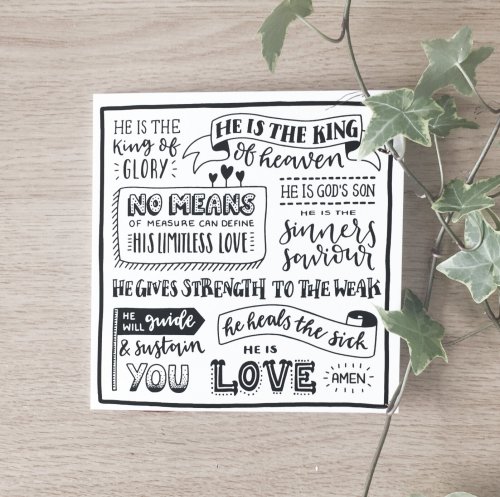 HE IS THE
king of
GLORY
HE IS THE KING
of heaven
NO MEANS
OF MEASURE CAN DEFINE
HIS LIMITLESS LOVE
HE IS GOD'S SON
HE IS THE
sinners
saviour
HE GIVES STRENGTH TO THE WEAK
HE
WILL guide
& sustain
YOU
he heals the sick
HE IS
LOVE
AMEN